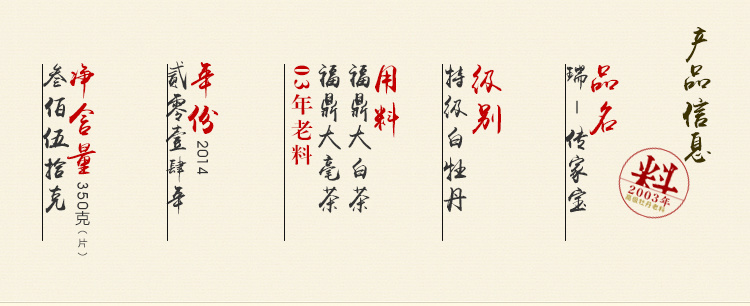 产品信息
料
2003年
品名
瑞一传家宝
级别
特级白牡丹
用料
福鼎大白茶
福鼎大毫茶
03年老料
年份
2014
贰零壹肆年
净含量
350克(片)
叁佰伍拾克